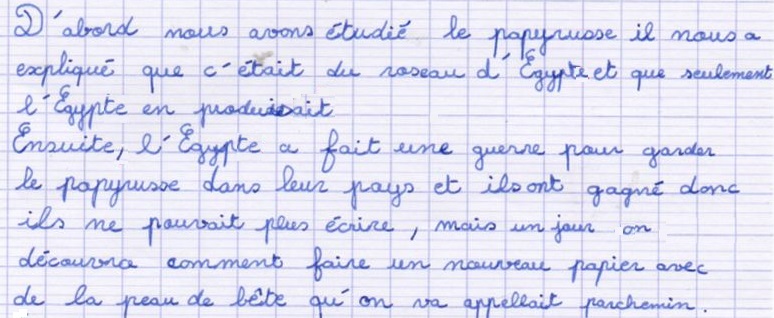 D'abord nous avons étudié le papyrusse il nous a
expliqué que c'était du roseau d'Égypte et que seulement
l'Égypte en produisait
Ensuite, l'Égypte a fait une guerre pour garder
le papyrusse dans leur pays et ils ont gagné donc
ils ne pouvait plus écrire, mais un jour on
découvra comment faire un nouveau papier avec
de la peau de bête qu'on va appellait parchemin.